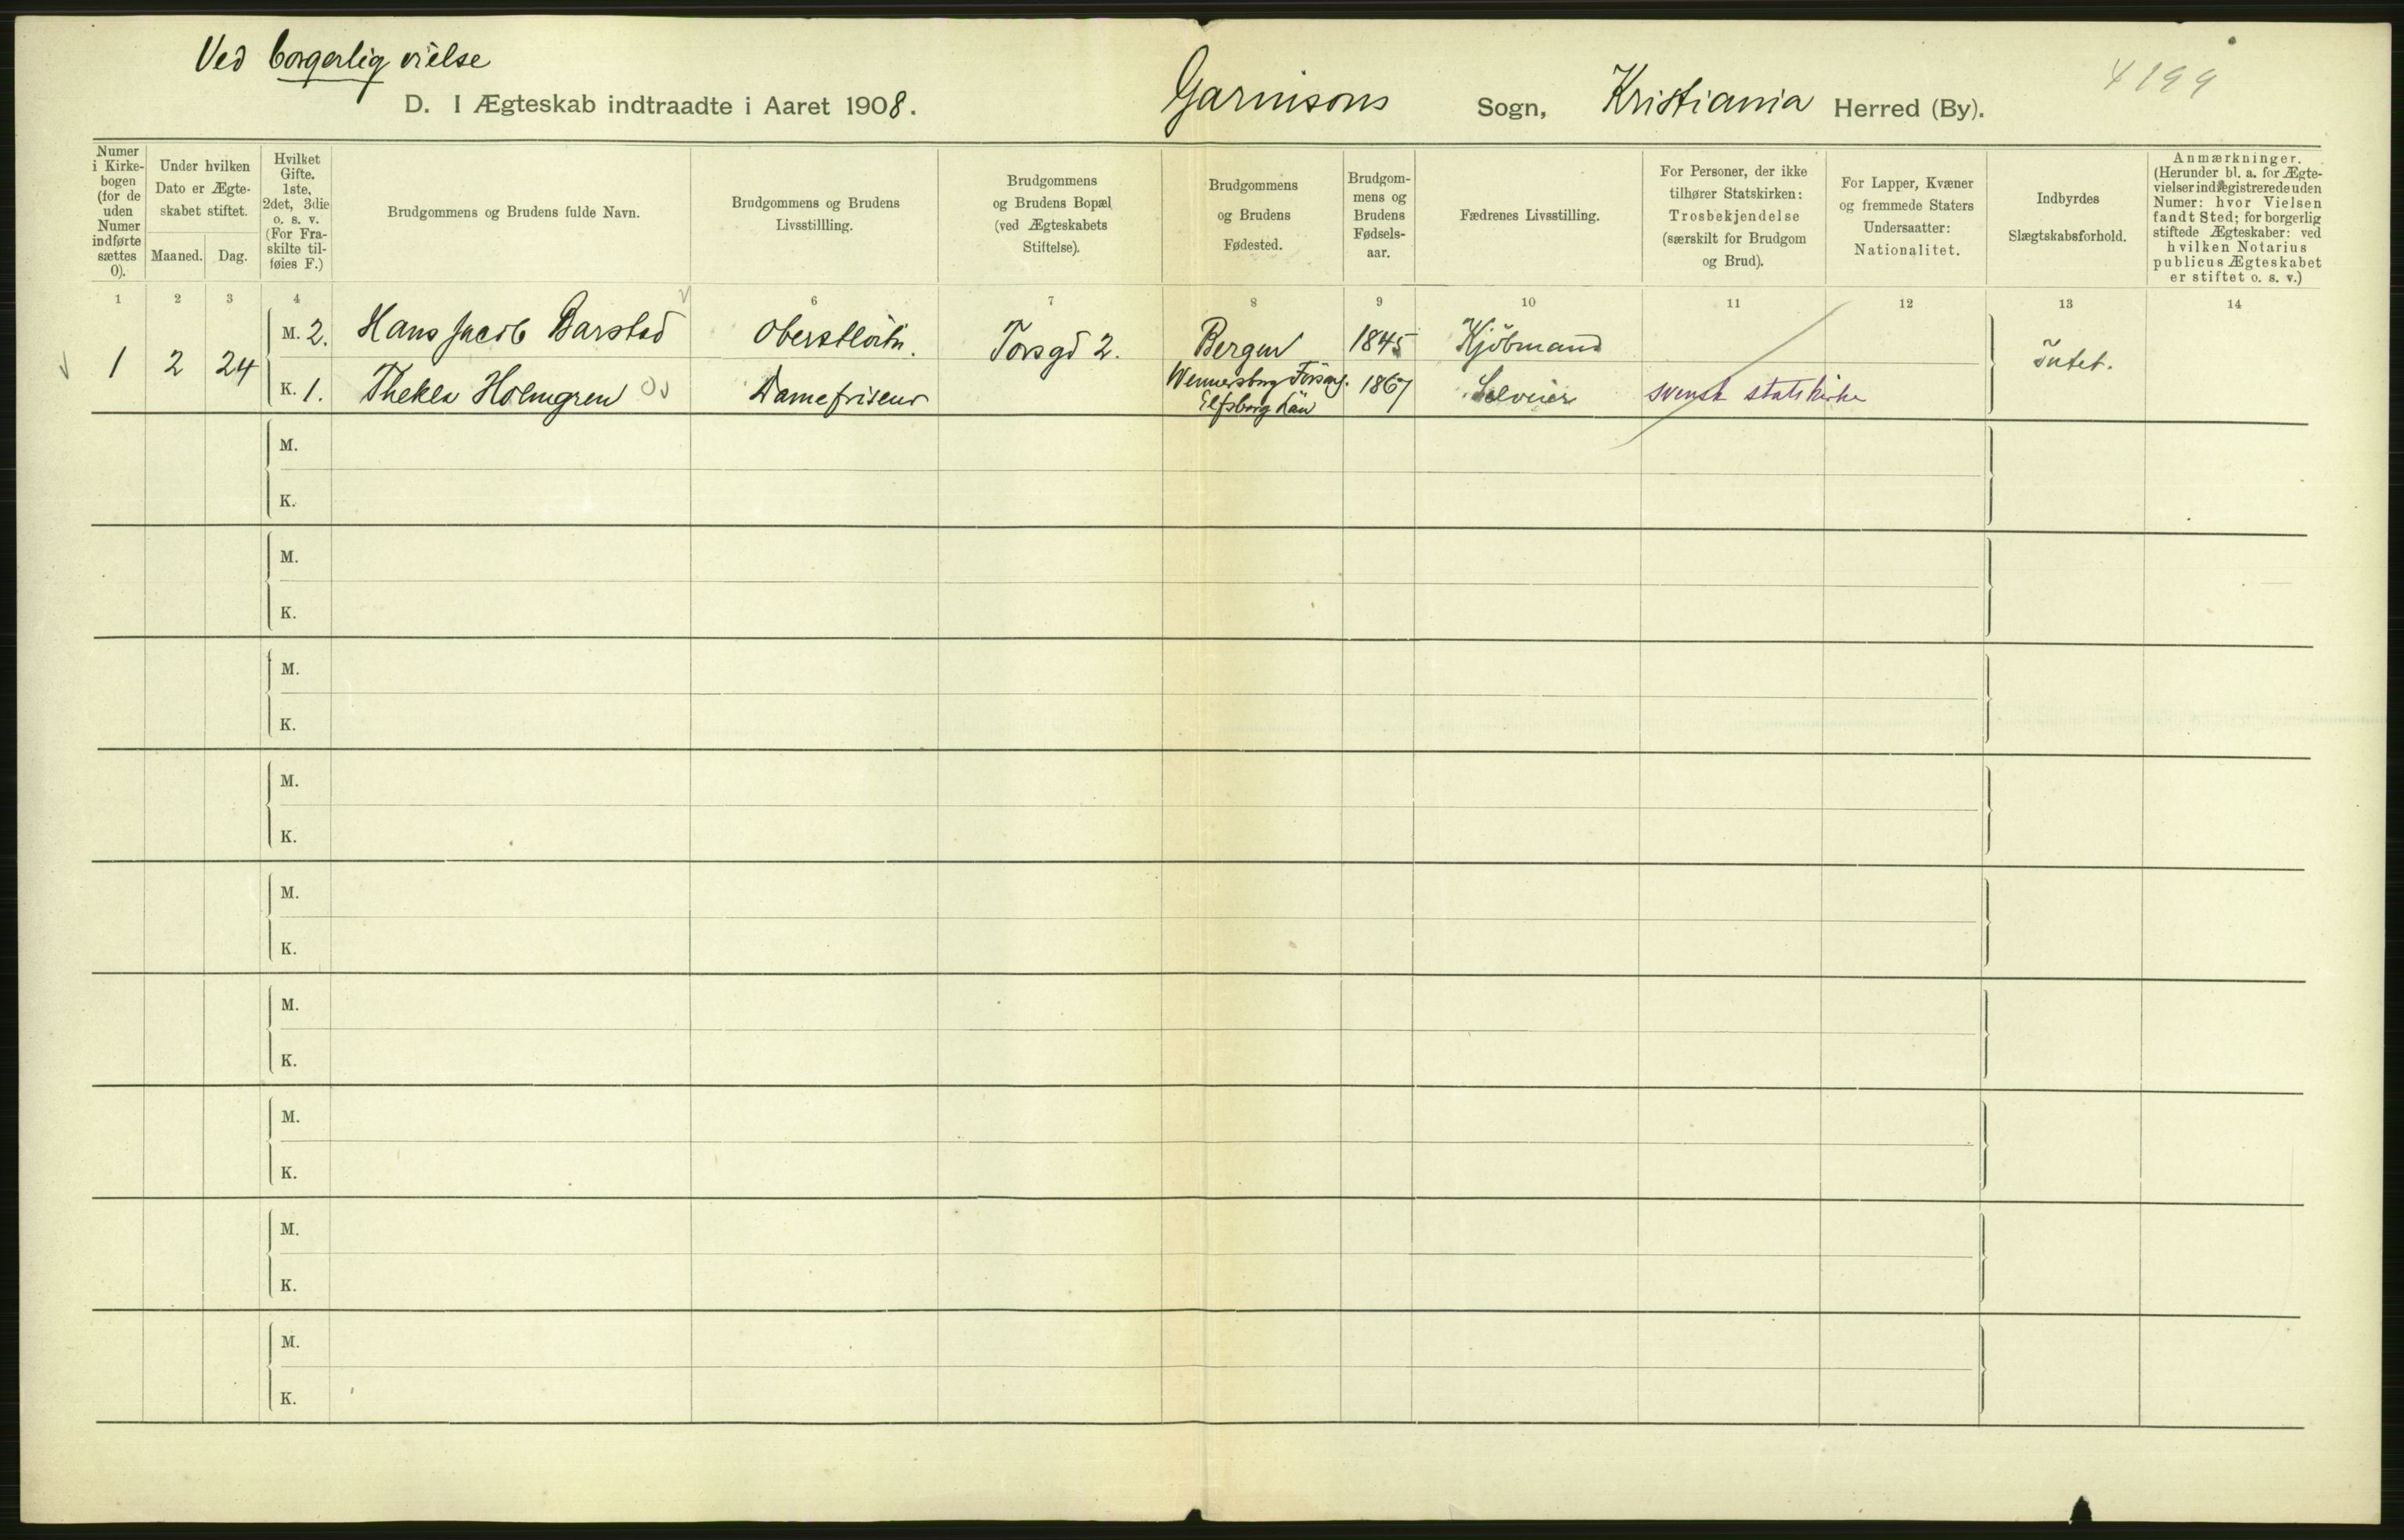 Ved borgerlig vielse
D. I Ægteskab indtraadte i Aaret 1908.
Garnisons Sogn, Kristiania Herred (By).
4199
Numer i Kirke-bogen (for de uden Numer indførte sættes 0).
Under hvilken Dato er Ægte-skabet stiftet.
Maaned. Dag.
Hvilket Gifte. 1ste, 2det, 3die o. s. v. (For Fra-skilte til-føies F.)
Brudgommens og Brudens fulde Navn.
Brudgommens og Brudens Livsstillling.
Brudgommens og Brudens Bopæl (ved Ægteskabets Stiftelse).
Brudgommens og Brudens Fødested.
Brudgom-mens og Brudens Fødsels-aar.
Fædrenes Livsstilling.
For Personer, der ikke tilhører Statskirken: Trosbekjendelse (særskilt for Brudgom og Brud).
For Lapper, Kvæner og fremmede Staters Undersaatter: Nationalitet.
Indbyrdes Slægtskabsforhold.
Anmærkninger. (Herunder bl. a. for Ægte-vielser indregistrerede uden Numer: hvor Vielsen fandt Sted; for borgerlig stiftede Ægteskaber: ved hvilken Notarius publicus Ægteskabet er stiftet o. s. v.)
1 2 3 4 6 7 8 9 10 11 12 13 14
1 2 24
M. 2. Hans Jacob Barstad Oberstløitn. Torsgd 2. Bergen 1845 Kjöbmand Intet.
K. 1. Thekla Holmgren Damefriseur Wennersborg Elfsborg Län 1867 Selveier svensk statskirke
M.
K.
M.
K.
M.
K.
M.
K.
M.
K.
M.
K.
M.
K.
M.
K.
M.
K.